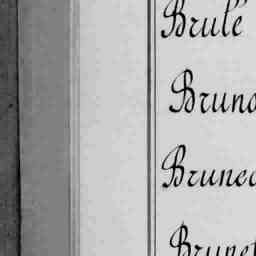 Brulé
Bruno
Bruneo
Brunet